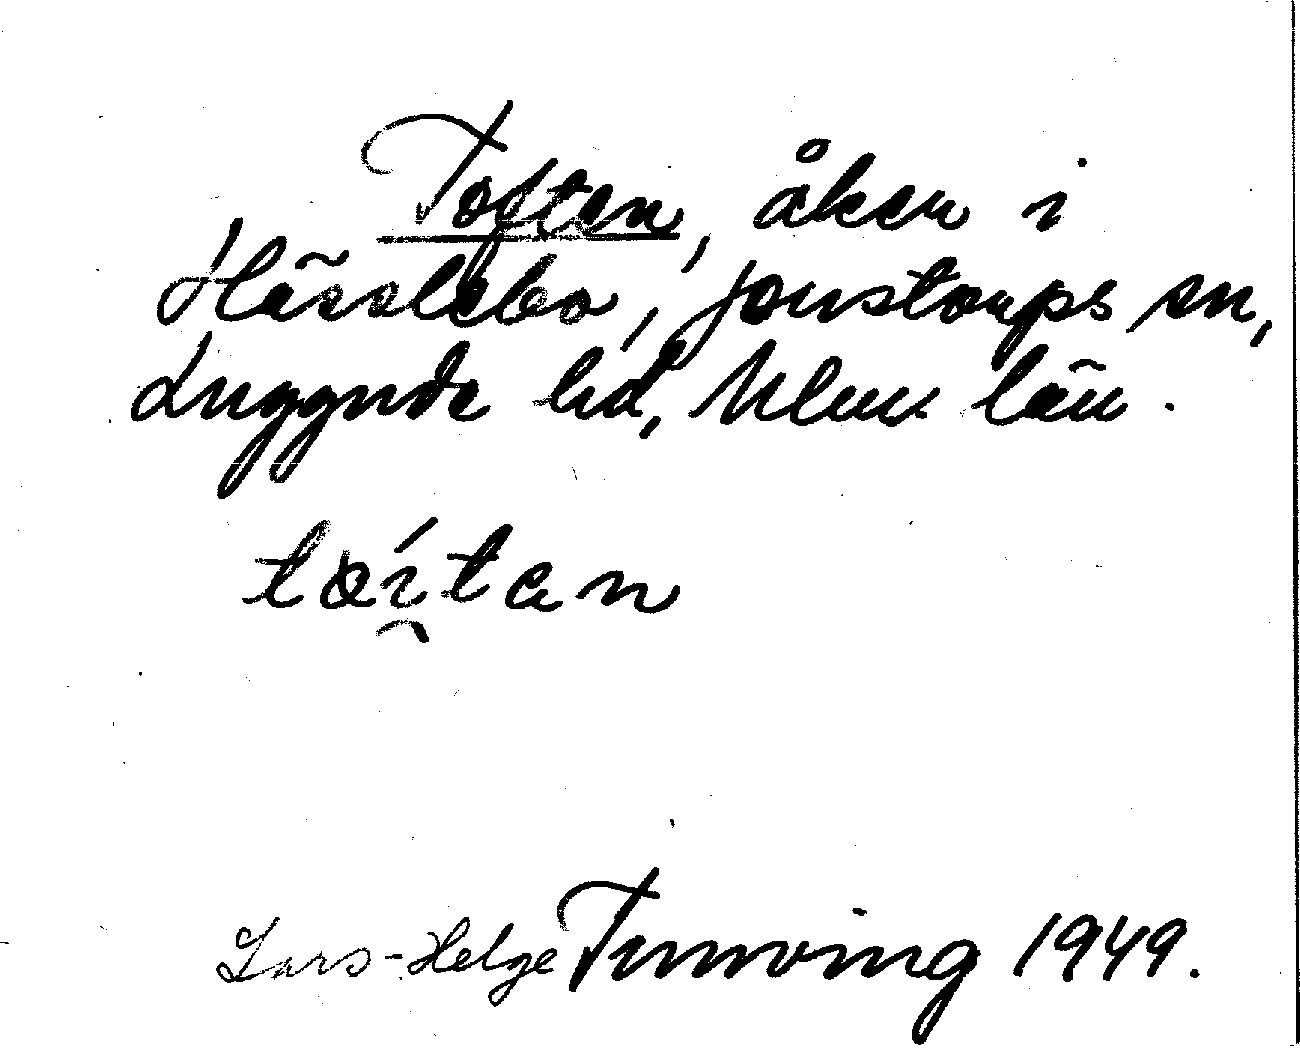 Toften, åker i
Hässlebo, Jonstorps sn,
Luggude hd, Mlm län.
Lars-Helge Tunving 1949.